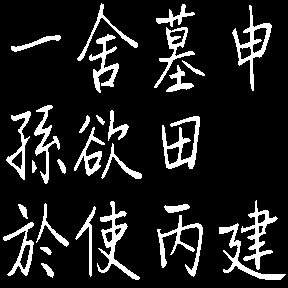 一舍墓申
孫欲田
於使丙建